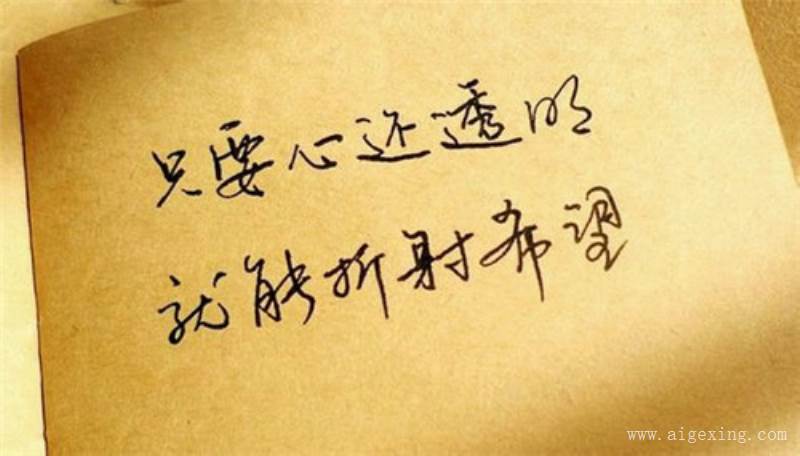 只要心还透明
就能折射希望
www.aigexing.com